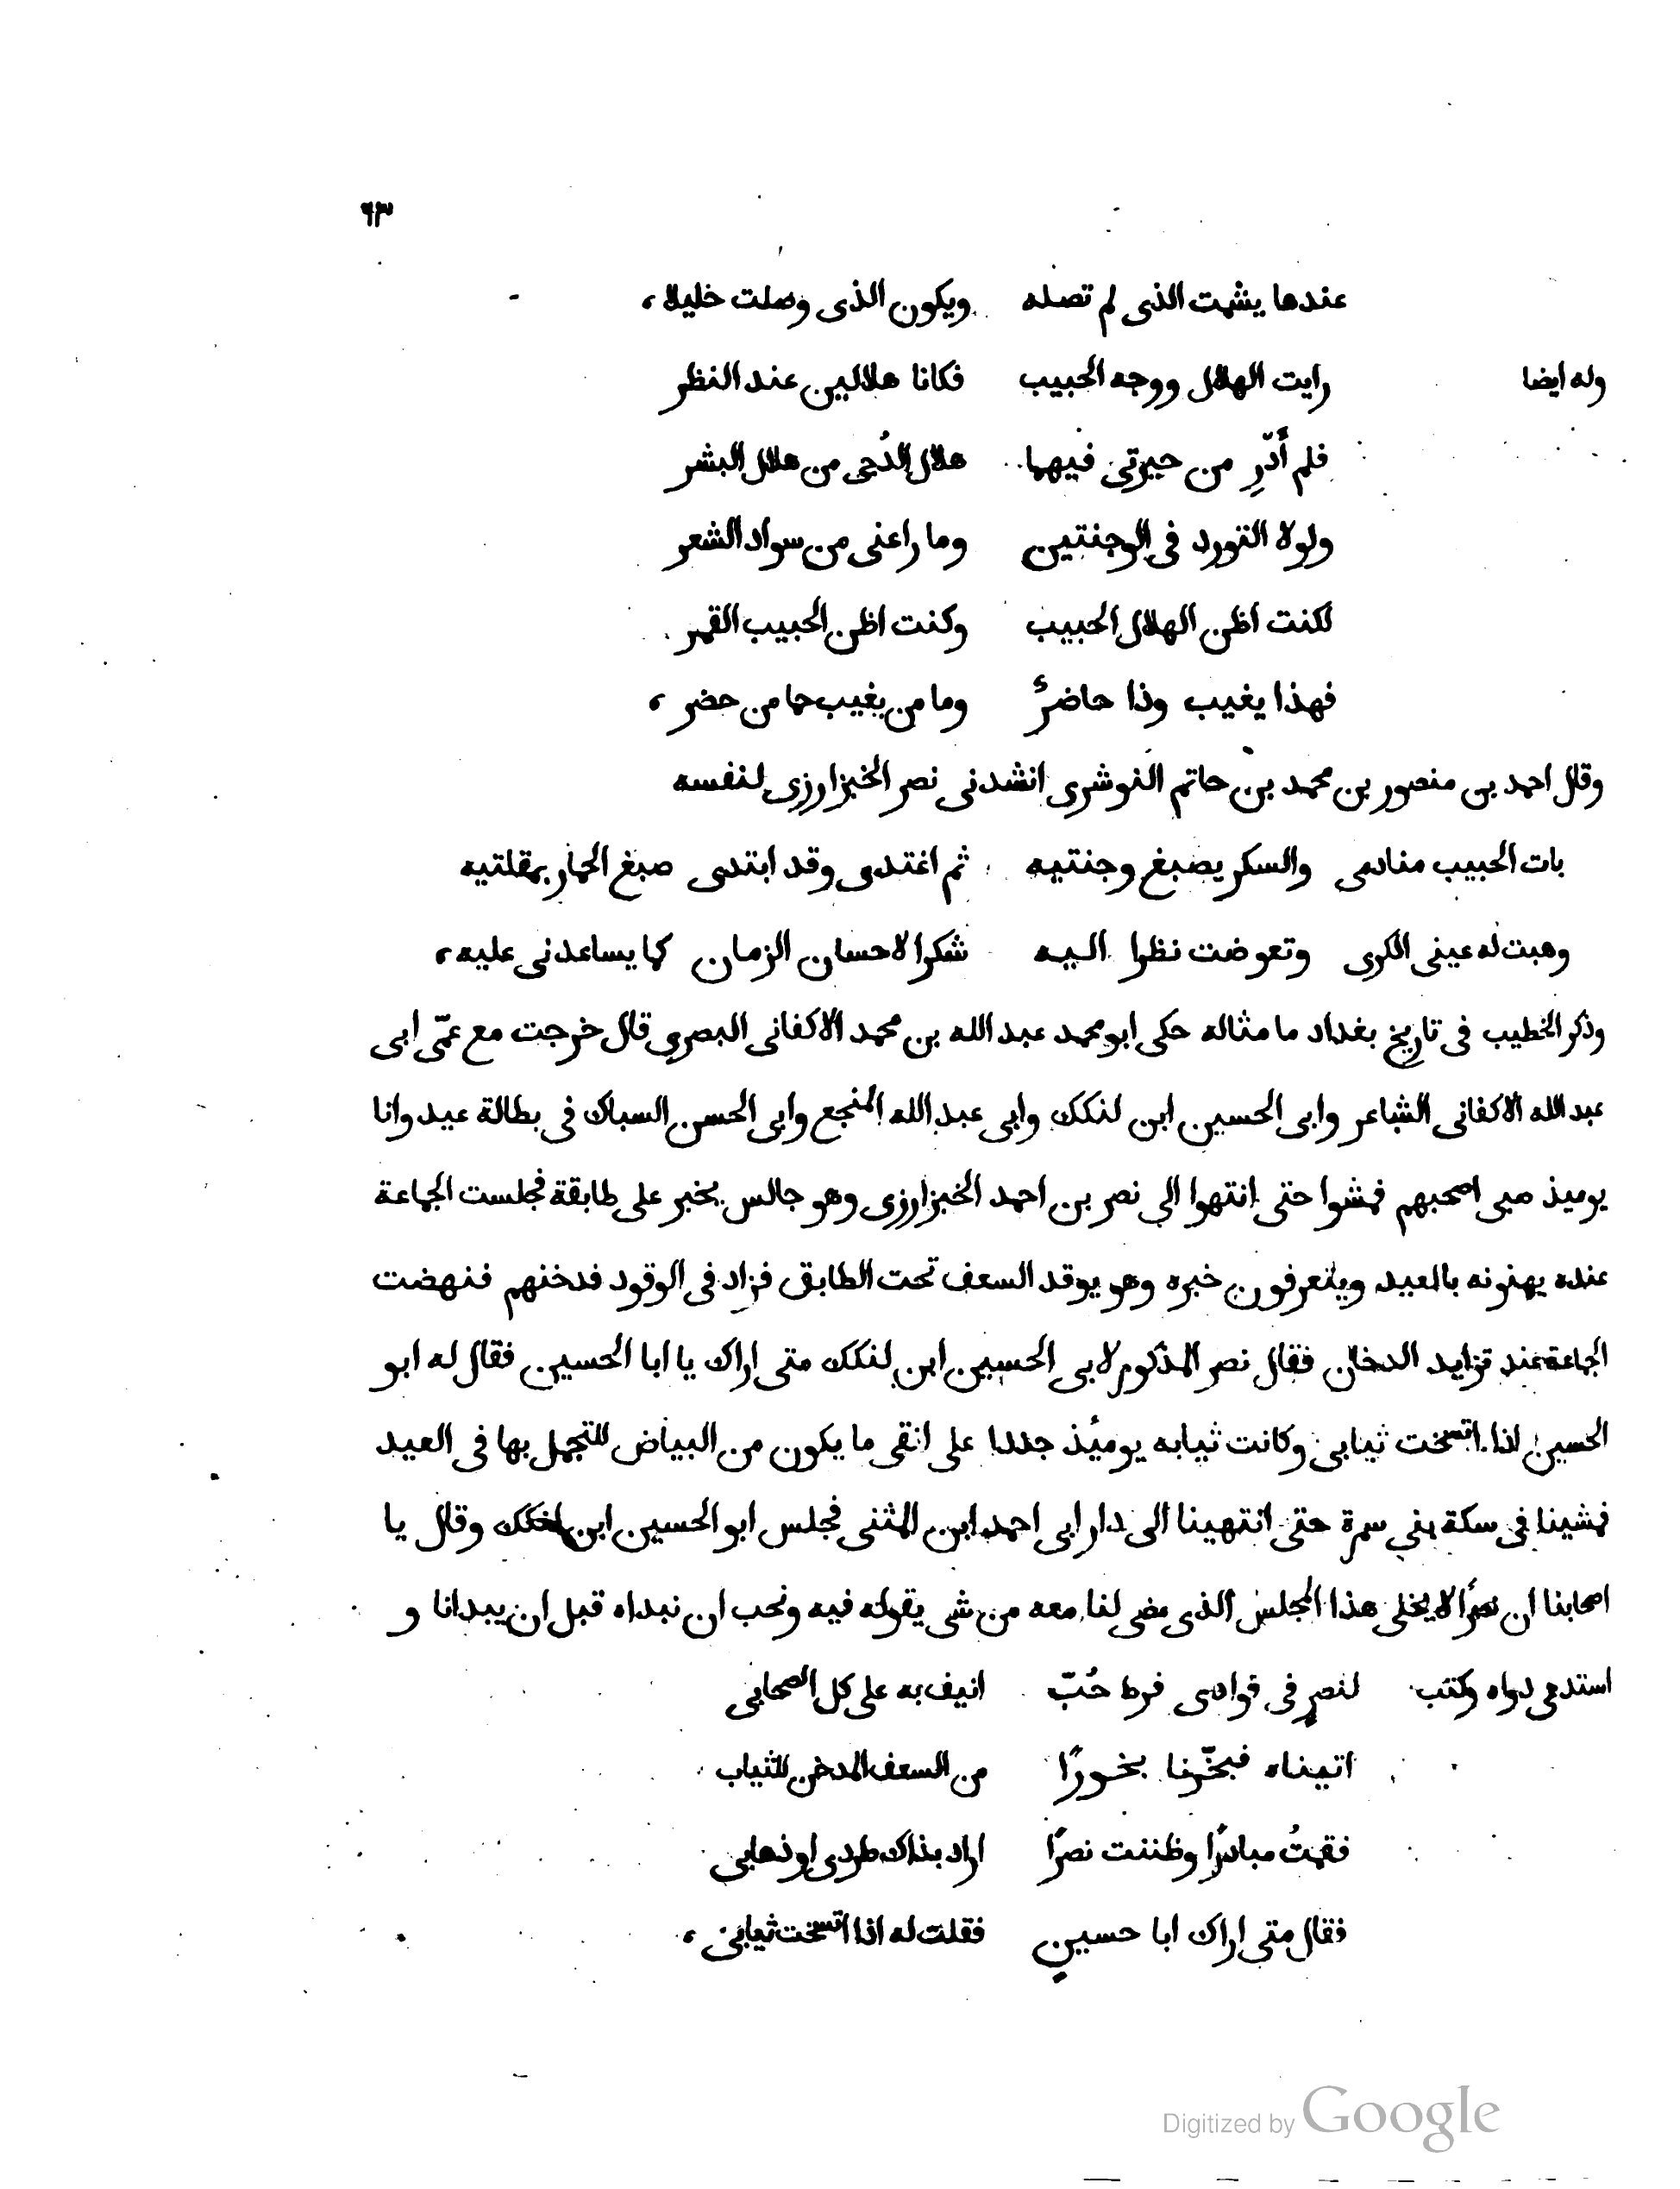 ٩٣
عندها يشمت الذى لم تصله ويكون الذى وصلت خليلا،
وله ايضا رايت الهلال ووجه الحبيب فكانا هلالين عند النظر
فلم أدّرِ من حيرتى فيهما هلال الدُجى من هلال البشر
ولولا التورد فى الوجنتين وما راعنى من سواد الشعر
لكنت اظن الهلال الحبيب وكنت اظن الحبيب القمر
فهذا يغيب وذا حاضرٌ وما من يغيب كما من حضر،
وقال احمد بن منصور بن محمد بن حاتم النوشرى انشدنى نصر الخبزارزى لنفسه
بات الحبيب منادمى والسكر يصبغ وجنتيه ثم اغتدى وقد ابتدى صبغ الخمار بمقلتيه
وهبت له عينى الكرى وتعوضت نظرا اليه شكرا لاحسان الزمان كما يساعدنى عليه،
وذكر الخطيب فى تاريخ بغداد ما مثاله حكى ابو محمد عبد الله بن محمد الاكفانى البصرى قال خرجت مع عمّى ابى
عبد الله الاكفانى الشاعر وابى الحسين ابن لنكك وابى عبد الله المنجع وابى الحسن السباك فى بطالة عيد وانا
يوميذ صبى اصحبهم فمشوا حتى انتهوا الى نصر بن احمد الخبزارزى وهو جالس يخبز على طابقة فجلست الجماعة
عنده يهنونه بالعيد ويتعرفون خبره وهو يوقد السعف تحت الطابق فزاد فى الوقود فدخنهم فنهضت
الجماعة عند تزايد الدخان فقال نصر المذكور لابى الحسين ابن لنكك متى اراك يا ابا الحسين فقال له ابو
الحسين اذا اتسخت ثيابى وكانت ثيابه يوميُذ جددا على انقى ما يكون من البياض للتجمل بها فى العيد
فمشينا فى سكة بنى سمرة حتى انتهينا الى دار ابى احمد ابن المثنى فجلس ابو الحسين ابن لنكك وقال يا
اصحابنا ان نصرًا لا يخلى هذا المجلس الذى مضى لنا معه من شى يقوله فيه ونحب ان نبداه قبل ان يبدانا و
استدعى دواه وكتب لنصرٍ فى فوادى فرط حُبّ انيف به على كل الصحابى
اتيناه فبخّرنا بخورًا من السعف المدخن للثياب
فقمتُ مبادرًا وظننت نصرًا اراد بذاك طردى او ذهابى
فقال متى اراك ابا حسينٍ فقلت له اذا اتسخت ثيابى،
Digitized by Google